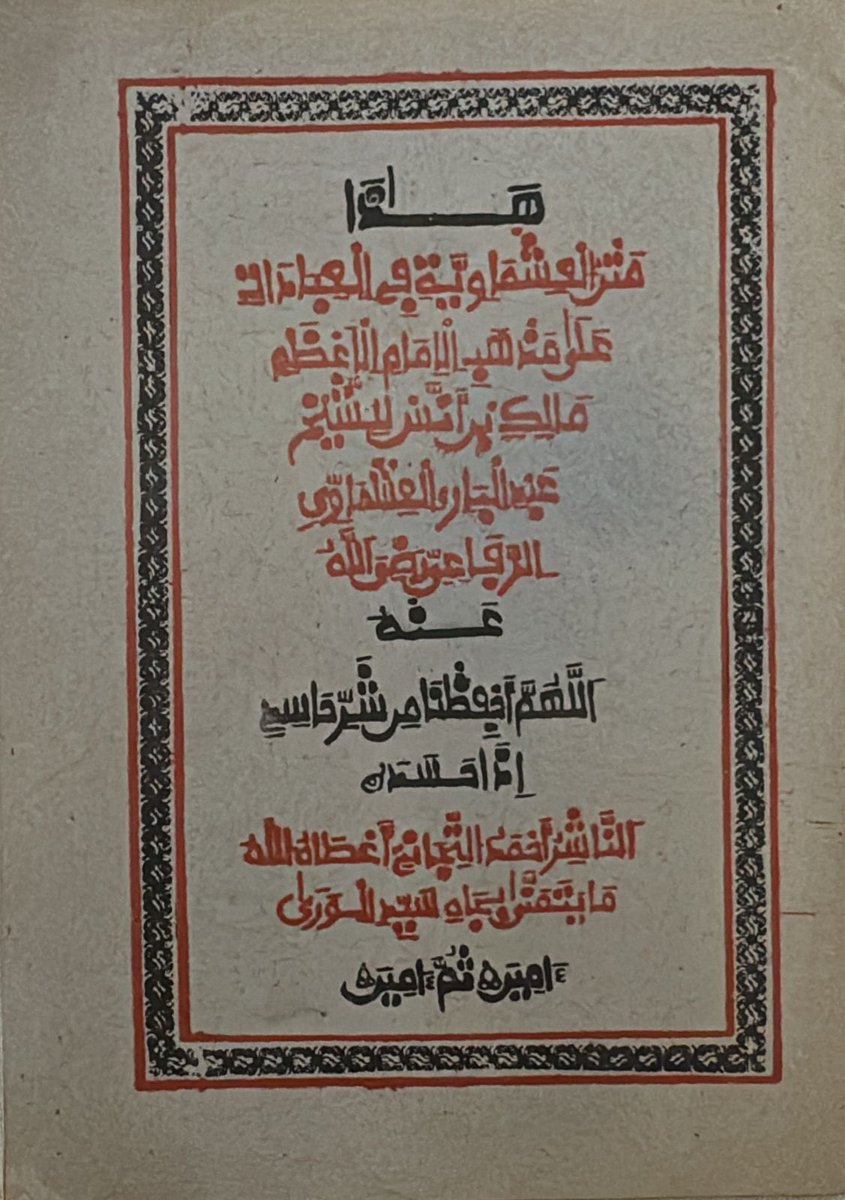 هَٰذَا
مَتْنُ الْعِشْمَاوِيَّةِ فِي الْعِبَادَاتِ
عَلَىٰ مَذْهَبِ الْإِمَامِ الْأَعْظَمِ
مَالِكِ بْنِ أَنَسٍ لِلشَّيْخِ
عَبْدِ الْبَارِي الْعِشْمَاوِيِّ
الرِّفَاعِيِّ رَضِيَ اللَّهُ
عَنْهُ
اللَّهُمَّ احْفِظْنَا مِن شَرِّ حَاسِدٍ
إِذَا حَسَدَ
النَّاشِرُ أَحْمَدُ التِّجَانِي أَعْطَاهُ اللَّه
مَا يَتَمَنَّىٰ بِجَاهِ سَيِّدِ الْوَرَىٰ
ءَامِين ثُمَّ ءَامِين